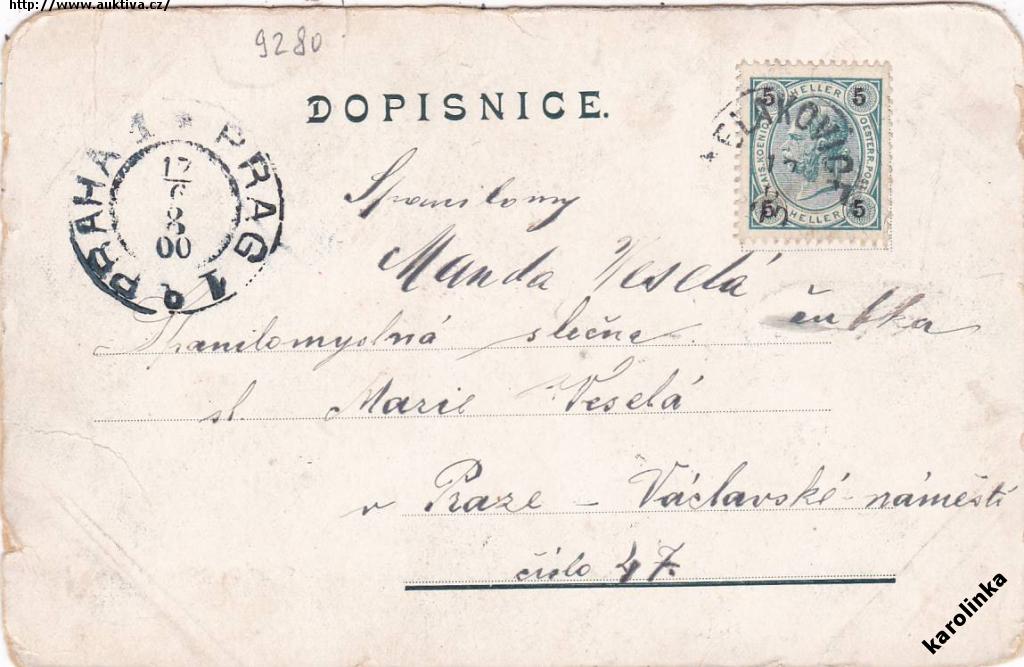 http://www.auktiva.cz/
9280
DOPISNICE.
PRAHA 1 * PRAG 1
17
6
8
00
5 HELLER 5
KAIS. KOENIGL. OESTERR. POST
5 HELLER 5
ELAKOVIC
Spanilomy
Manda Veselá
Spanilomyslná slečna
sl. Marie Veselá
v Praze – Václavské-náměstí
číslo 47.
karolinka